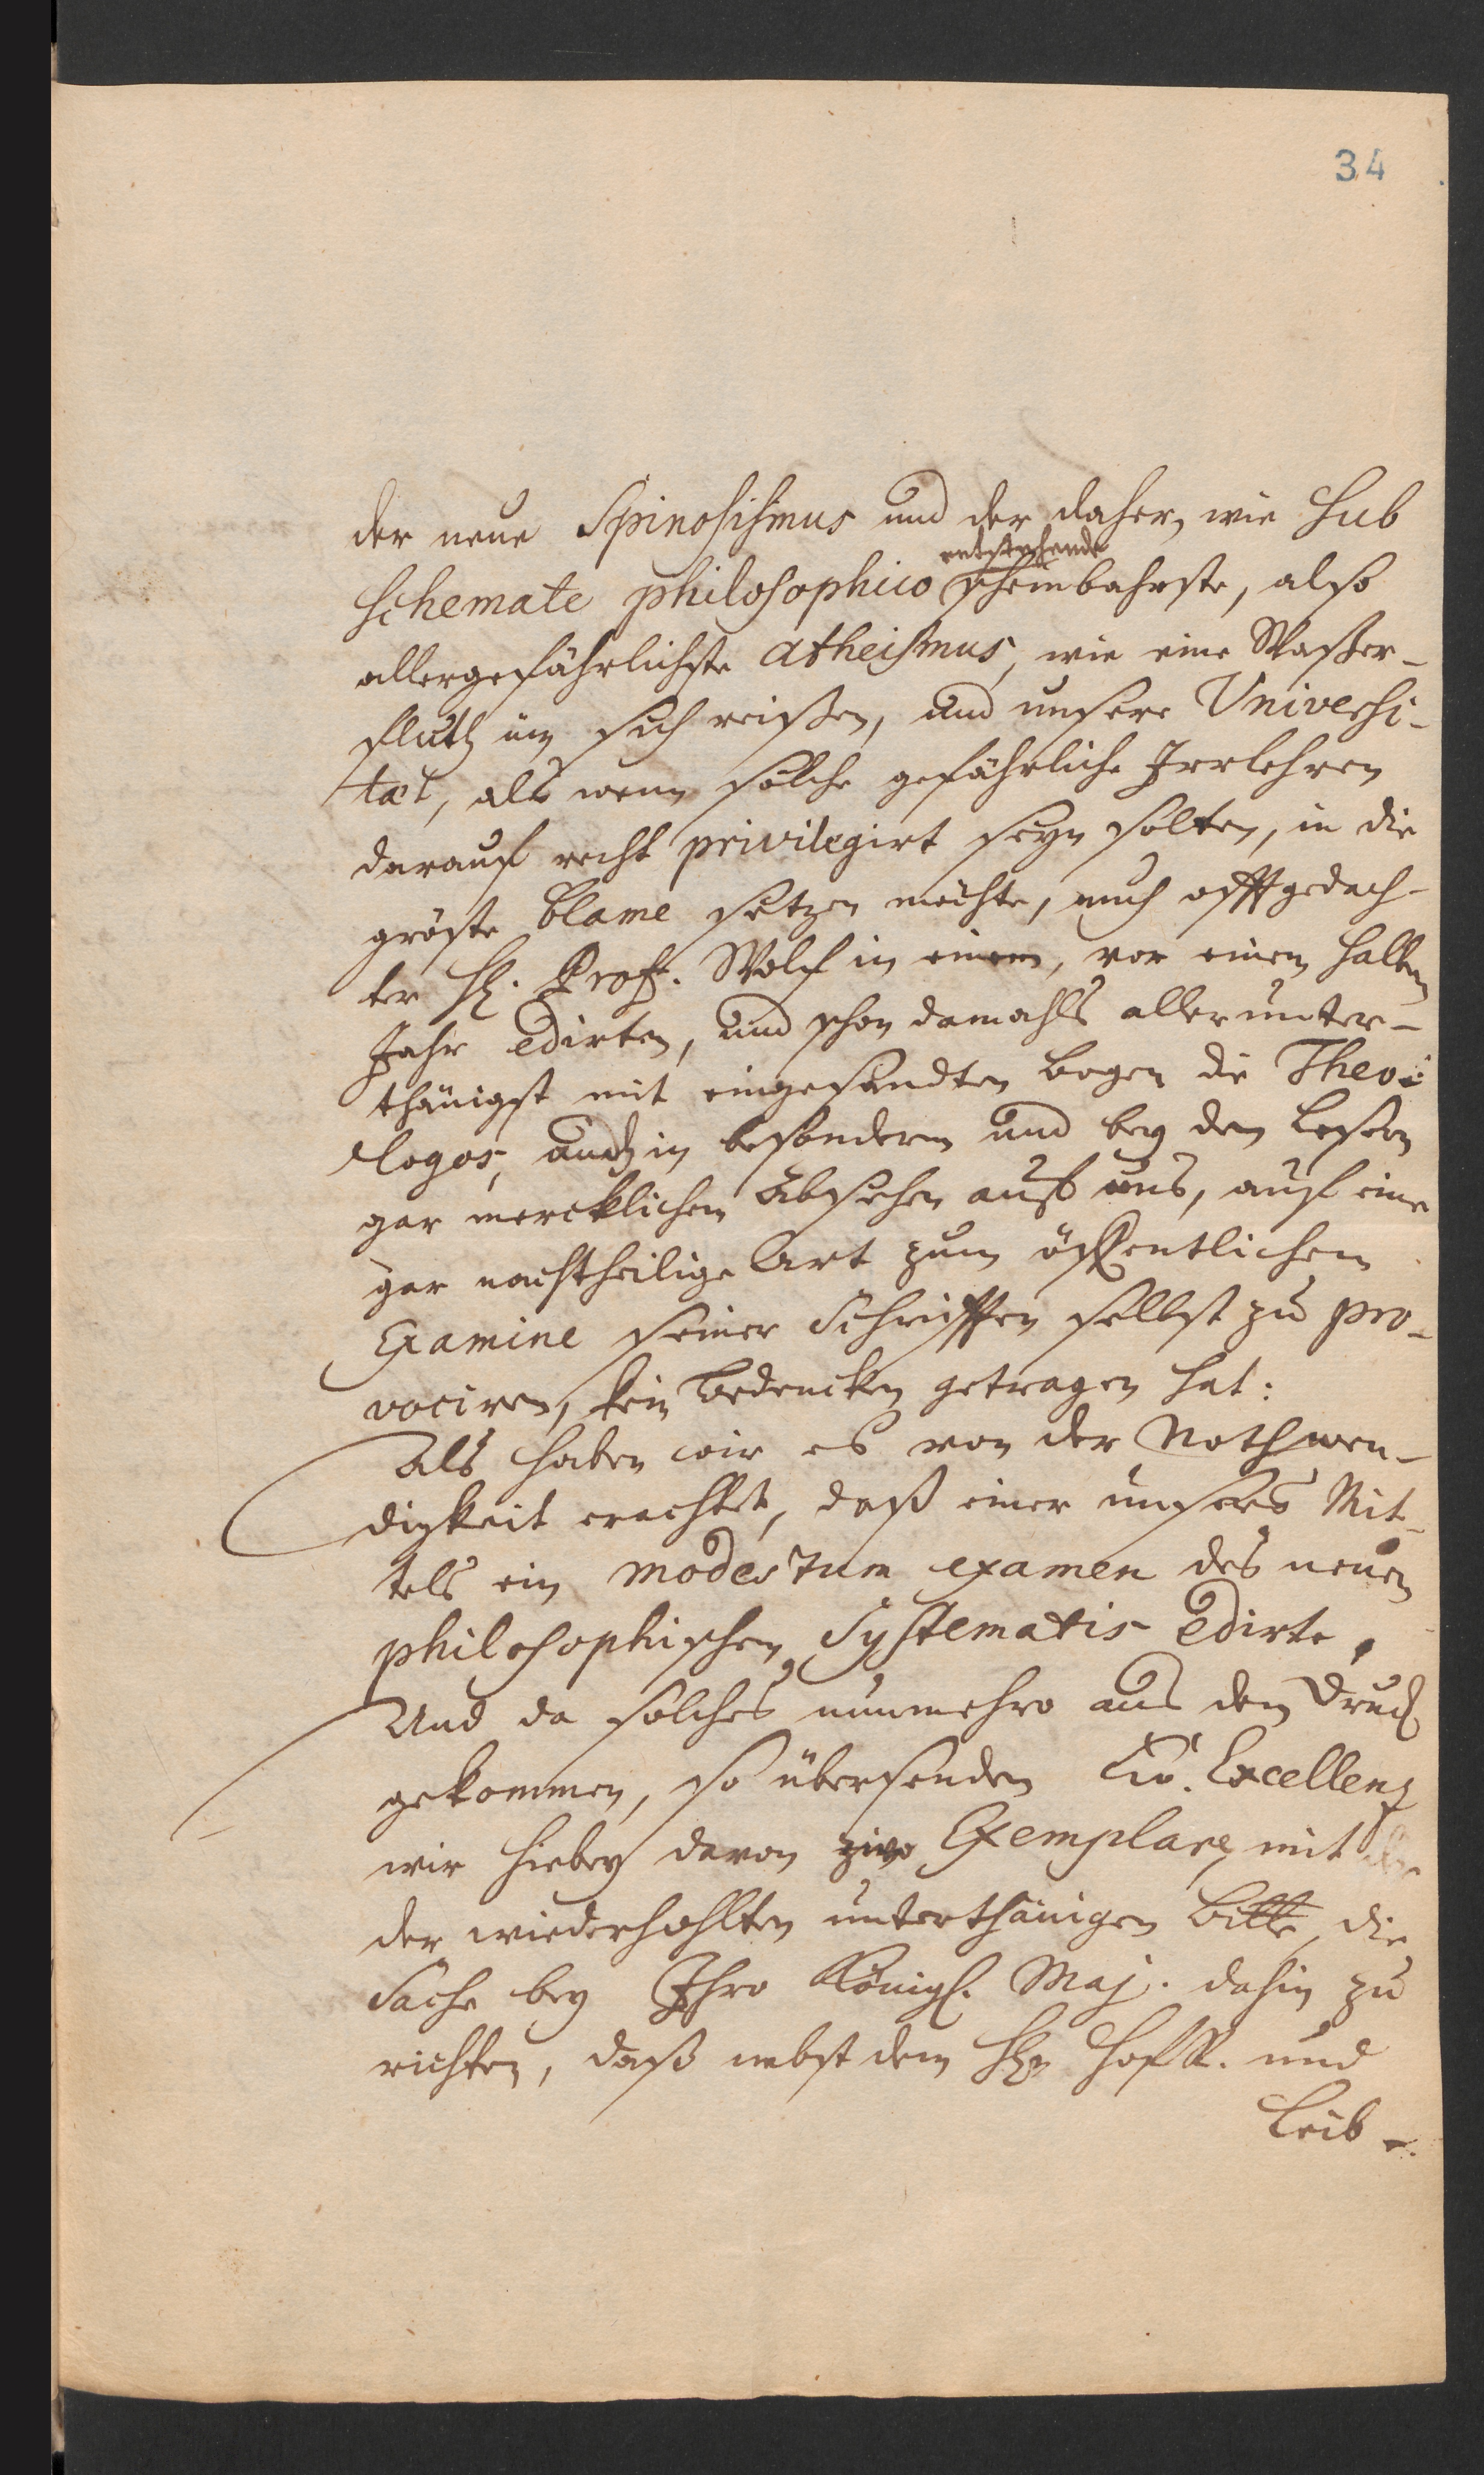 34
der neue Spinosismus und der daher, wie sub
entstehende
schemate philosophico scheinbahrste, also
allergefährlichste atheismus, wie eine Waßer-
fluth üm sich reißen, und unsere Universi-
tæt, als wenn solche gefährliche Irrlehren
darauf recht privilegirt seyn solten, in die
gröste blame setzen möchte, auch offtgedach-
ter H. Prof. Wolf in einem, vor einem halben
Jahr edirten, und schon damahls allerunter-
thänigst mit eingesandten bogen die Theo-
logos, auch in besondern und bey den Lesern
gar mercklichen Absehen auf uns, auf eine
gar nachtheilige Art zum öffentlichen
Examine seiner Schrifften selbst zu pro-
vociren, kein bedencken getragen hat:
Als haben wir es von der Nothwen-
digkeit erachtet, daß einer unsers Mit-
tels ein modestum examen des neuen
philosophischen Systematis edirte.
Und da solches nunmehro aus dem Druck
gekommen, so übersenden Ew. Excellenz
wir hiebey davon zwo Exemplare, mit
der wiederhohlten unterthänigen bitte, die
Sache bey Ihro Königl. Maj. dahin zu
richten, daß nebst dem Hn HofR. und
Leib-